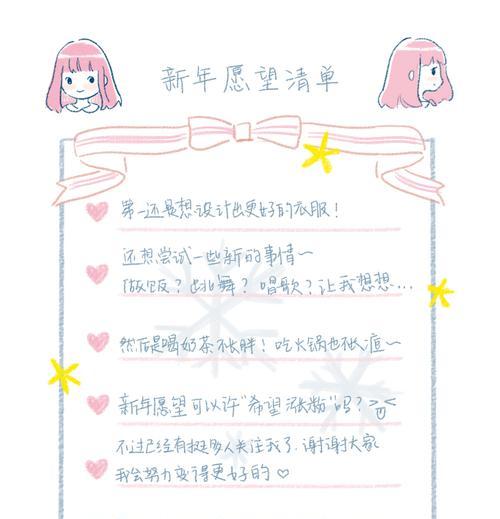 新年愿望清单
第一还是想设计出更好的衣服！
还想尝试一些新的事情～
做饭？跳舞？唱歌？让我想想...
然后是喝奶茶不长胖！吃火锅也不长痘～
新年愿望可以许“希望涨粉”吗？
不过已经有挺多人关注我了，谢谢大家
我会努力变得更好的♡